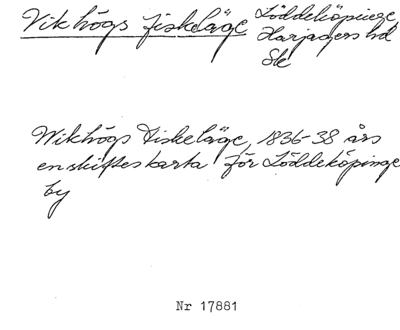 Vikhögs fiskeläge Löddeköpinge
Harjagers hd
Sk
Wikhögs Fiskeläge, 1836-38 års
enskifteskarta för Löddeköpinge
by
Nr 17881